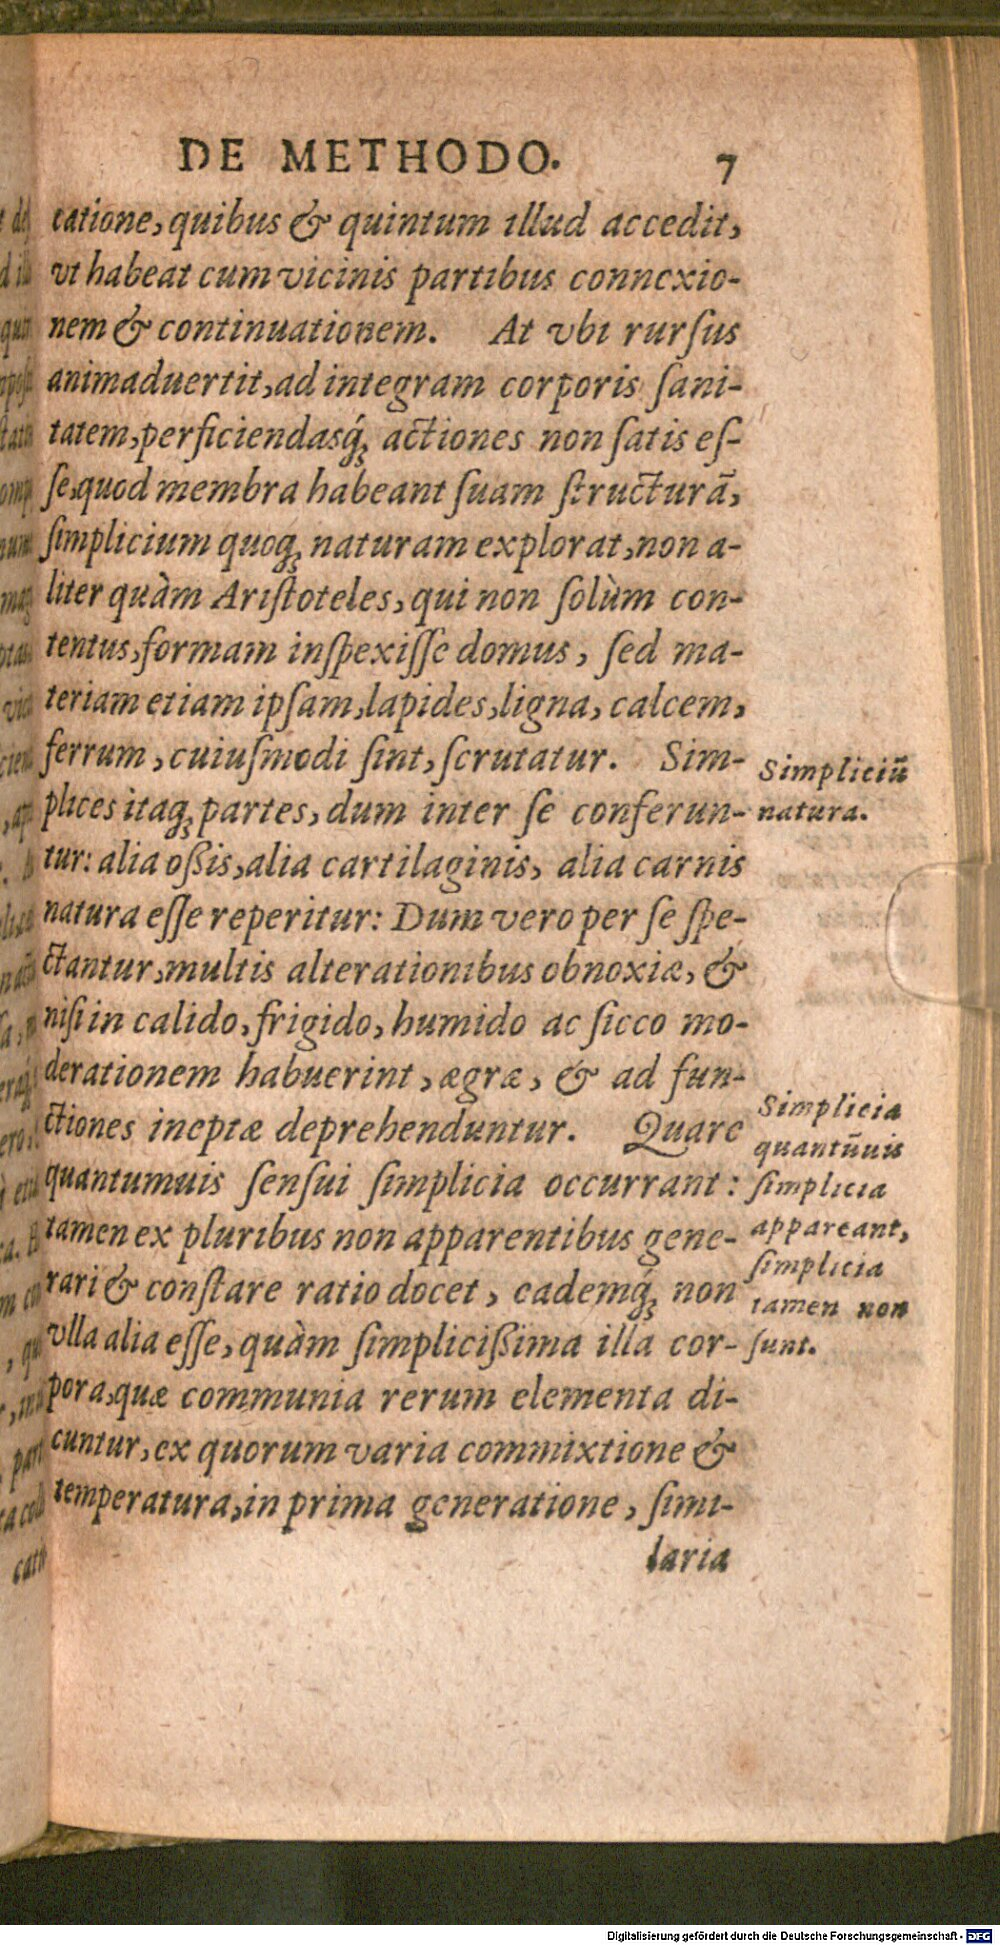 DE METHODO. 7
catione, quibus & quintum illud accedit,
vt habeat cum vicinis partibus connexio-
nem & continuationem. At vbi rursus
animaduertit, ad integram corporis sani-
tatem, perficiendasq́; actiones non satis es-
se, quod membra habeant suam structurã,
simplicium quoq; naturam explorat, non a-
liter quàm Aristoteles, qui non solùm con-
tentus, formam inspexisse domus, sed ma-
teriam etiam ipsam, lapides, ligna, calcem,
ferrum, cuiusmodi sint, scrutatur. Sim-
plices itaq; partes, dum inter se conferun-
tur: alia oßis, alia cartilaginis, alia carnis
natura esse reperitur: Dum vero per se spe-
ctantur, multis alterationibus obnoxiæ, &
nisi in calido, frigido, humido ac sicco mo-
derationem habuerint, ægræ, & ad fun-
ctiones ineptæ deprehenduntur. Quare
quantumuis sensui simplicia occurrant:
tamen ex pluribus non apparentibus gene-
rari & constare ratio docet, eademq́; non
vlla alia esse, quàm simplicißima illa cor-
pora, quæ communia rerum elementa di-
cuntur, ex quorum varia commixtione &
temperatura, in prima generatione, simi-
laria
Simpliciũ
natura.
Simplicia
quantũuis
simplicia
appareant,
simplicia
tamen non
sunt.
Digitalisierung gefördert durch die Deutsche Forschungsgemeinschaft - DFG